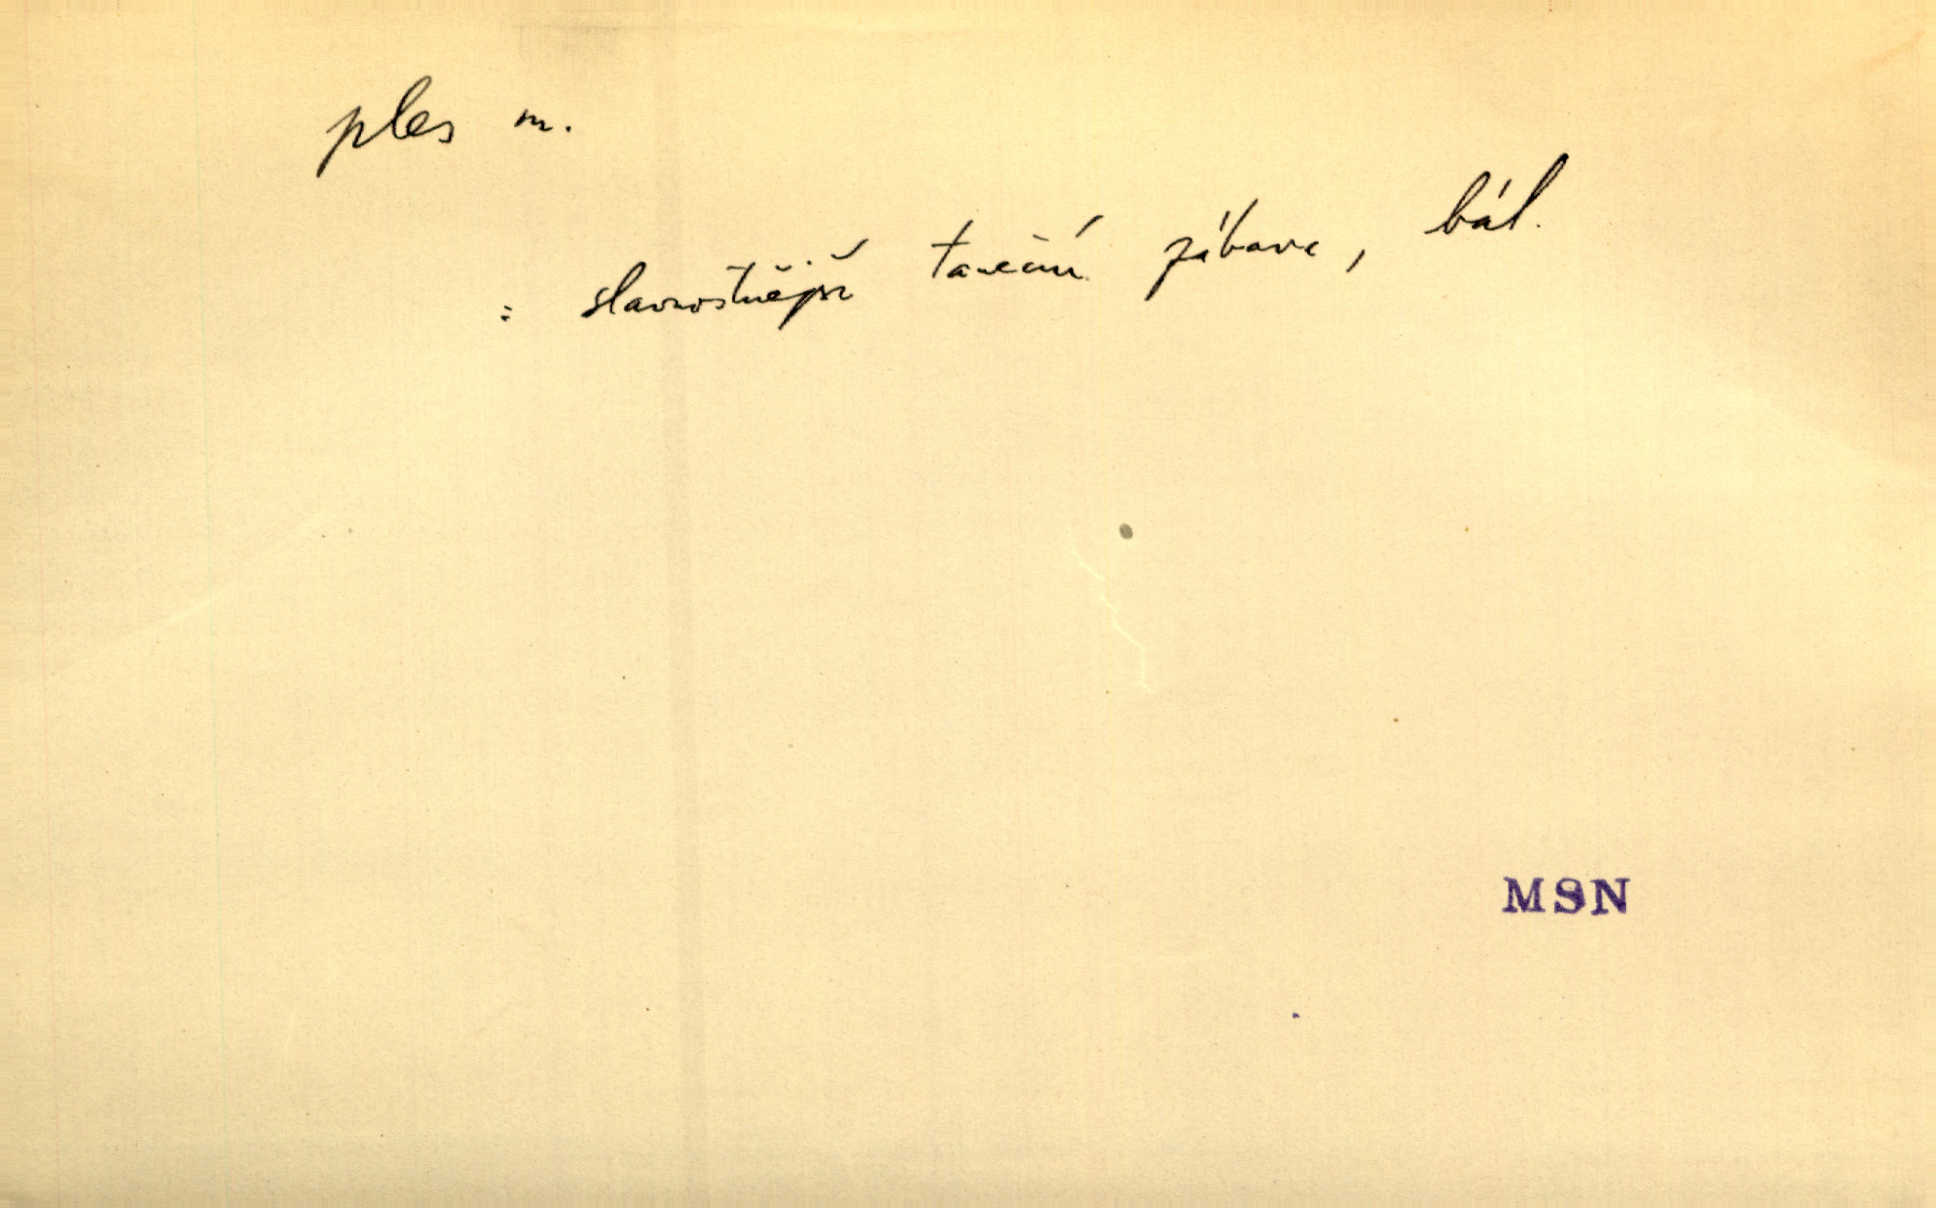 ples m.
: slavnostnější taneční zábava, bál.
MSN